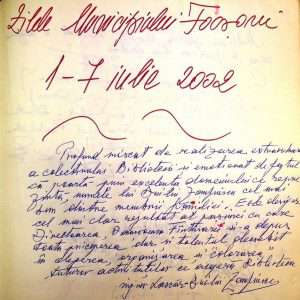 Zilele Municipiului Focșani
1-7 iulie 2002
Profund mișcat de realizarea extraordinară
a colectivului Bibliotecii și emoționat de faptul
că poartă prin excelența domeniului ce reprezintă
numele lui Duiliu Zamfirescu cel mai
bun dintre membrii familiei. Este desigur
cel mai clar rezultat al pasiunii cu care
Directoarea Doamna și-a depus
toată priceperea dar și talentul deosebit
în alegerea, organizarea și colaborarea
tuturor activităților ce Biblioteca
ing. Lascăr-Duiliu Zamfirescu